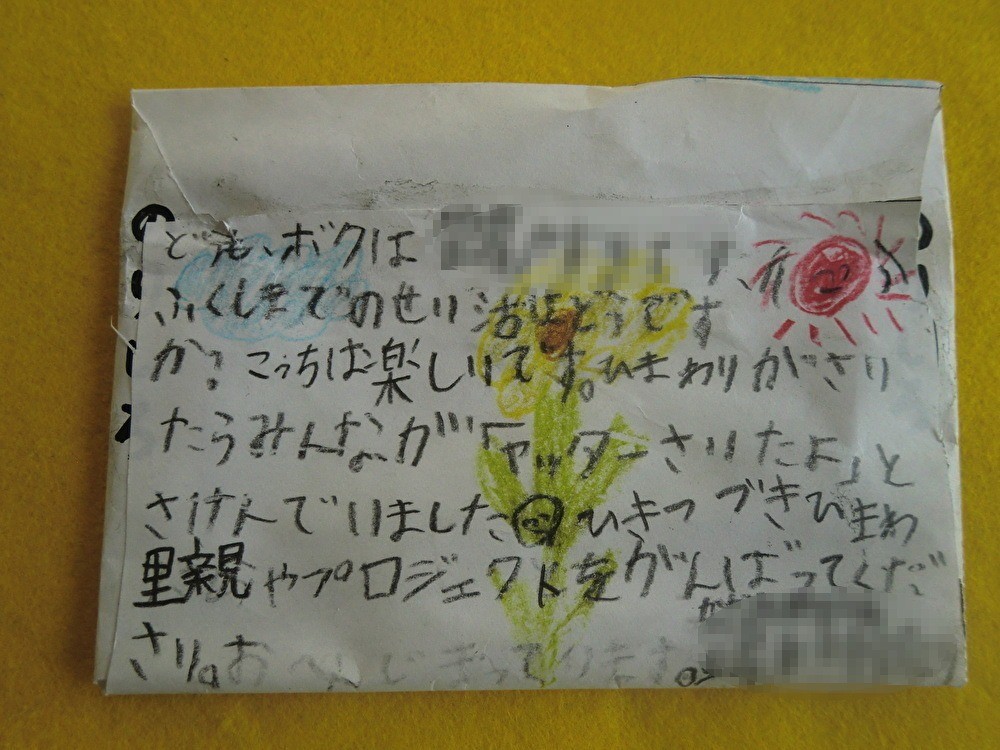 どうも、ボクは
ふくしまでのせい活はどうです
か?こっちは楽しいです。ひまわりがさい
たらみんなが「ヤッターさいたよ」と
さけんでいました ひきつづきひまわ
里親やプロジェクトをがんばってくだ
さい。おへんじまっています。